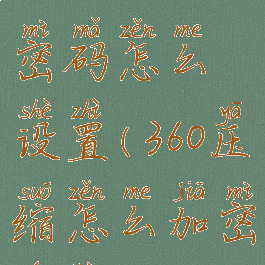 mì mǎ zěn me
密码怎么
shè zhì yā
设置(360压
suō zěn me jiā mì
缩怎么加密